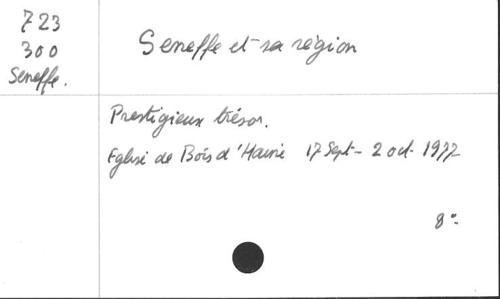 723
300
Seneffe.
Seneffe et sa région
Prestigieux trésor.
Eglise de Bois d'Haine 17 Sept - 2 oct. 1977
8°.